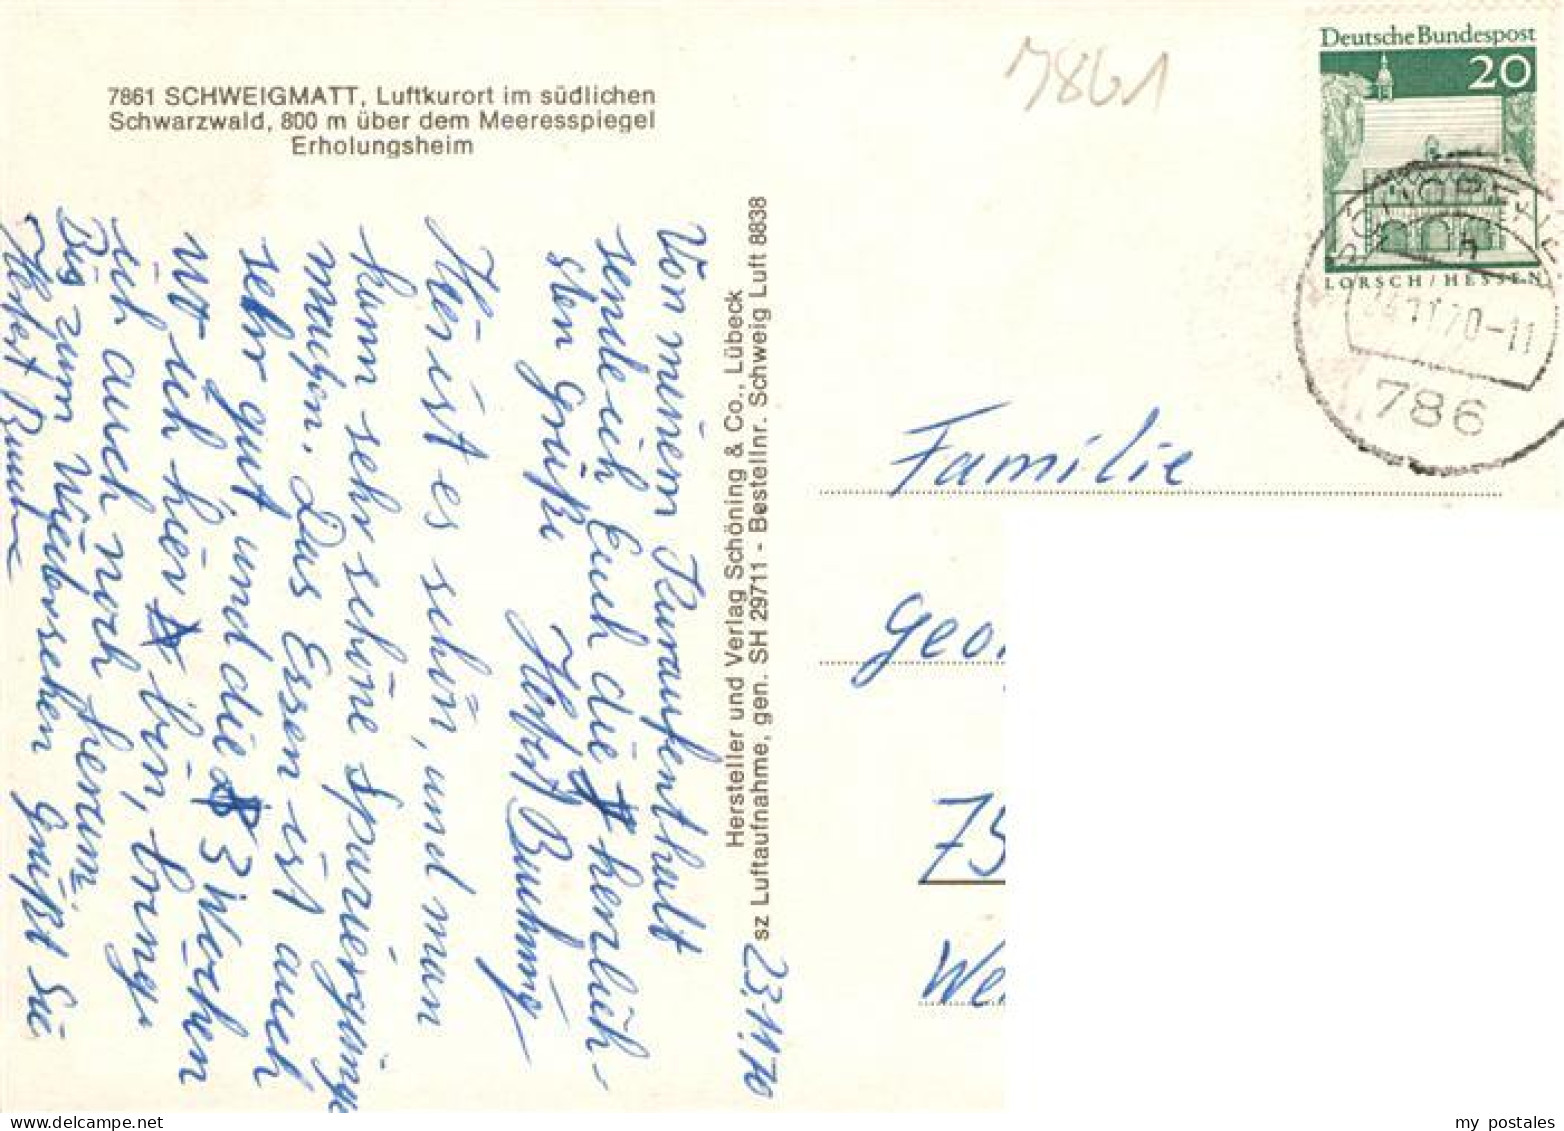 7861 SCHWEIGMATT, Luftkurort im südlichen
Schwarzwald, 800 m über dem Meeresspiegel
Erholungsheim
7861
Deutsche Bundespost
20
LORSCH/HESSEN
SCHOPFHEIM
24.11.70-11
786
Hersteller und Verlag Schöning & Co., Lübeck
sz Luftaufnahme, gen. SH 29711 - Bestellnr. Schweig Luft 8838
23.11.70
Von meinem Kuraufenthalt
sende ich Euch die herzlich-
sten Grüße
Hier ist es schön, und man
kann sehr schöne Spaziergänge
machen. Das Essen ist auch
sehr gut und die 3 Wochen
wo ich hier bin, bring
ich auch noch herum.
Bis zum Wiedersehen Grüßt Sie
Familie
Geor
75
We
my postales